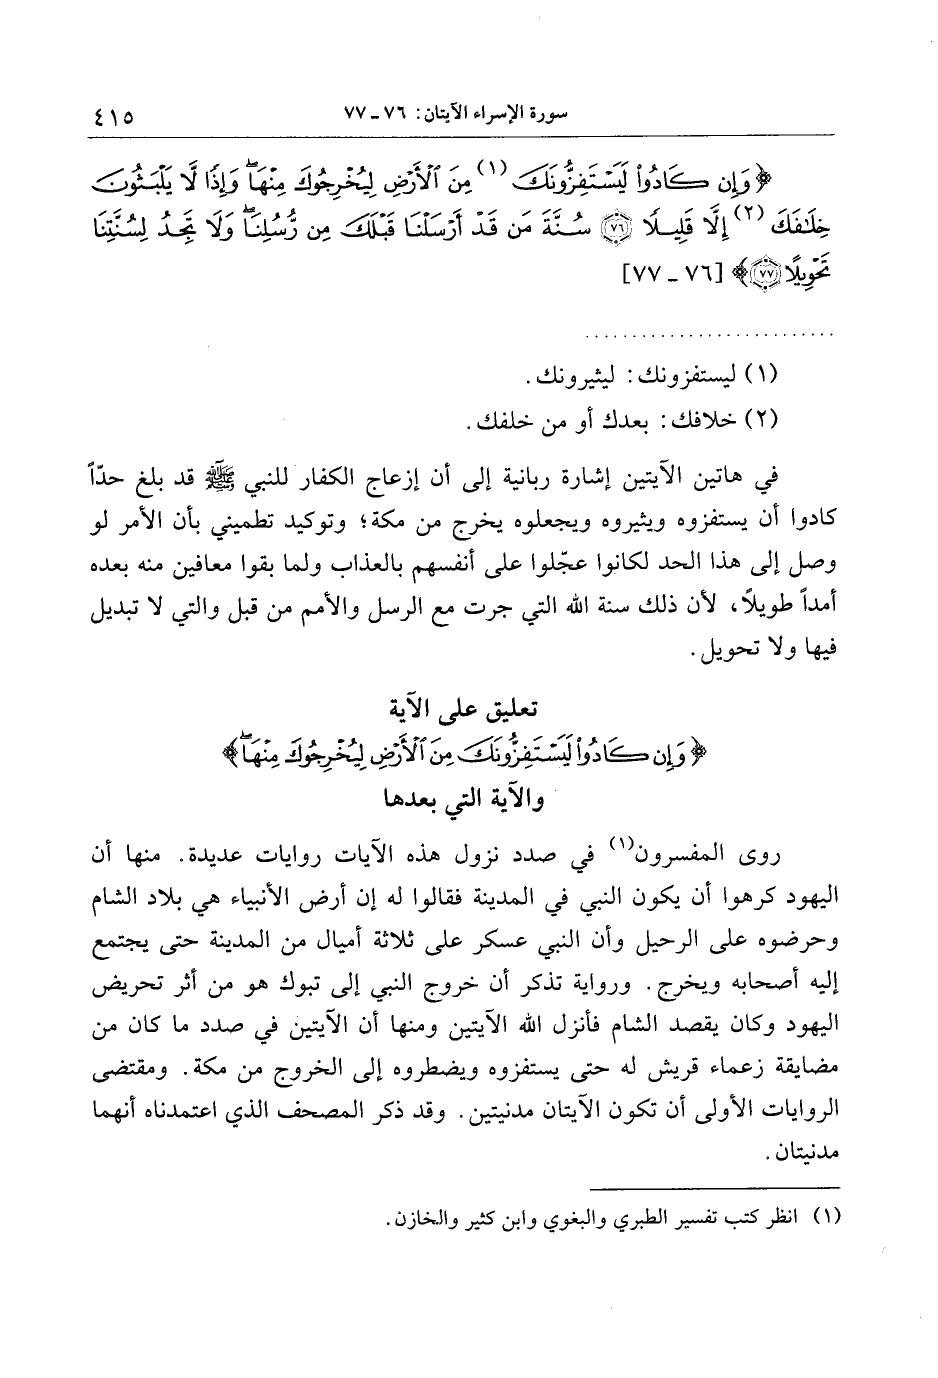 سورة الإسراء الآيتان: ٧٦ ـ ٧٧ ٤١٥
﴿وَإِن كَادُواْ لَيَسْتَفِزُّونَكَ (١) مِنَ ٱلْأَرْضِ لِيُخْرِجُوكَ مِنْهَاۖ وَإِذًا لَّا يَلْبَثُونَ
خِلَٰفَكَ (٢) إِلَّا قَلِيلًا ۝٧٦ سُنَّةَ مَن قَدْ أَرْسَلْنَا قَبْلَكَ مِن رُّسُلِنَاۖ وَلَا تَجِدُ لِسُنَّتِنَا
تَحْوِيلًا ۝٧٧﴾ [٧٦ ـ ٧٧]
..........................
(١) ليستفزونك: ليثيرونك.
(٢) خلافك: بعدك أو من خلفك.
في هاتين الآيتين إشارة ربانية إلى أن إزعاج الكفار للنبي ﷺ قد بلغ حدّاً
كادوا أن يستفزوه ويثيروه ويجعلوه يخرج من مكة؛ وتوكيد تطميني بأن الأمر لو
وصل إلى هذا الحد لكانوا عجّلوا على أنفسهم بالعذاب ولما بقوا معافين منه بعده
أمداً طويلاً، لأن ذلك سنة الله التي جرت مع الرسل والأمم من قبل والتي لا تبديل
فيها ولا تحويل.
تعليق على الآية
﴿وَإِن كَادُواْ لَيَسْتَفِزُّونَكَ مِنَ ٱلْأَرْضِ لِيُخْرِجُوكَ مِنْهَاۖ﴾
والآية التي بعدها
روى المفسرون(١) في صدد نزول هذه الآيات روايات عديدة. منها أن
اليهود كرهوا أن يكون النبي في المدينة فقالوا له إن أرض الأنبياء هي بلاد الشام
وحرضوه على الرحيل وأن النبي عسكر على ثلاثة أميال من المدينة حتى يجتمع
إليه أصحابه ويخرج. ورواية تذكر أن خروج النبي إلى تبوك هو من أثر تحريض
اليهود وكان يقصد الشام فأنزل الله الآيتين ومنها أن الآيتين في صدد ما كان من
مضايقة زعماء قريش له حتى يستفزوه ويضطروه إلى الخروج من مكة. ومقتضى
الروايات الأولى أن تكون الآيتان مدنيتين. وقد ذكر المصحف الذي اعتمدناه أنهما
مدنيتان.
(١) انظر كتب تفسير الطبري والبغوي وابن كثير والخازن.